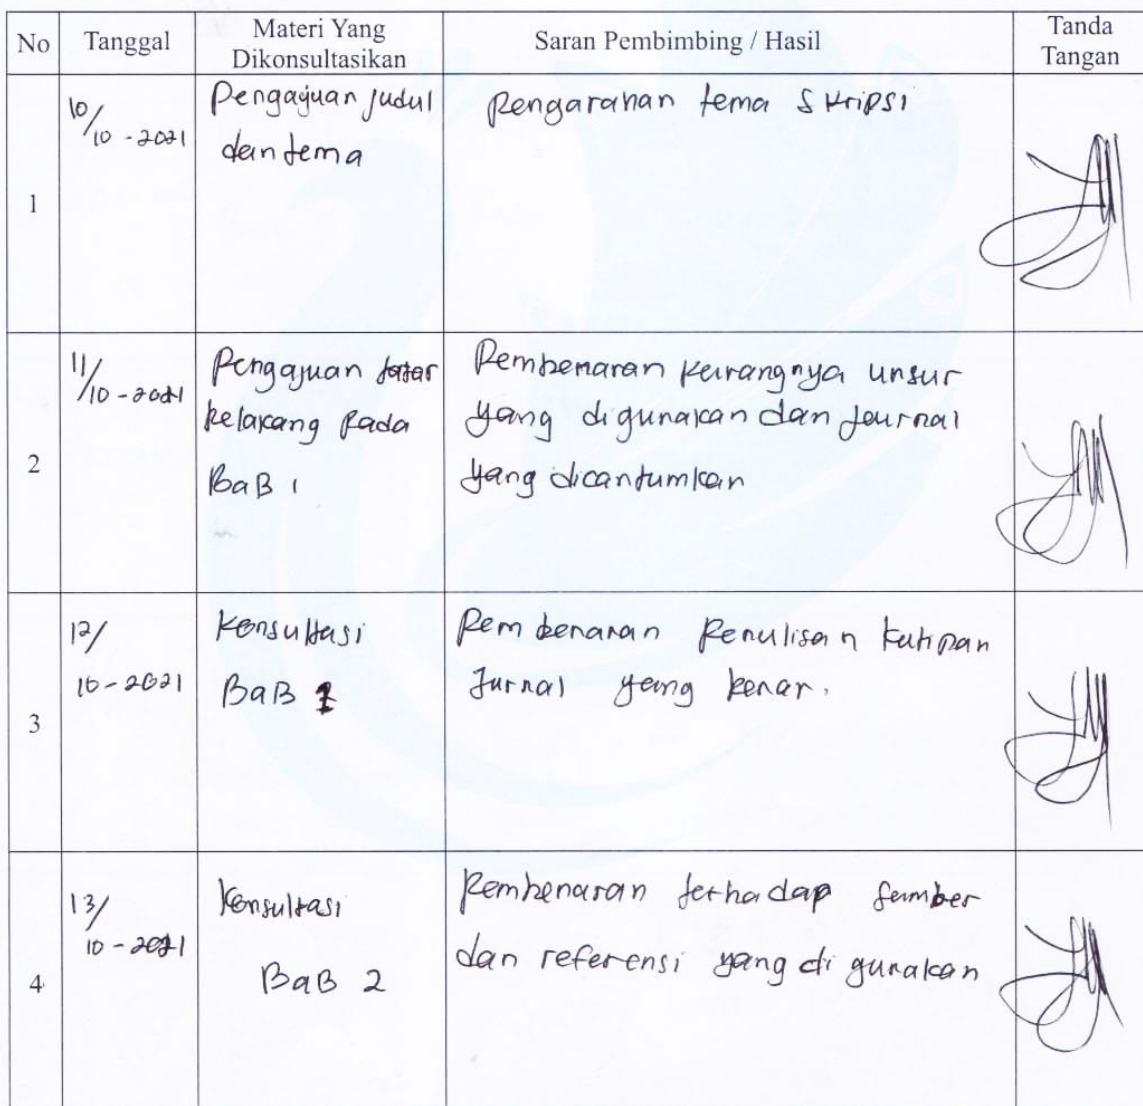 No Tanggal Materi Yang Dikonsultasikan Saran Pembimbing / Hasil Tanda Tangan
1
10/10-2021
Pengajuan judul
dan tema
Pengarahan tema Skripsi
2
11/10-2021
Pengajuan latar
belakang pada
BaB 1
Pembenaran kurangnya unsur
yang digunakan dan journal
yang dicantumkan
3
12/
10-2021
Konsultasi
BaB 1
Pembenaran Penulisan kutipan
Jurnal yang benar.
4
13/
10-2021
Konsultasi
BaB 2
Pembenaran terhadap sumber
dan referensi yang di gunakan